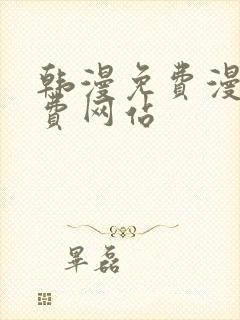 韩漫免费漫
费网站
畢磊